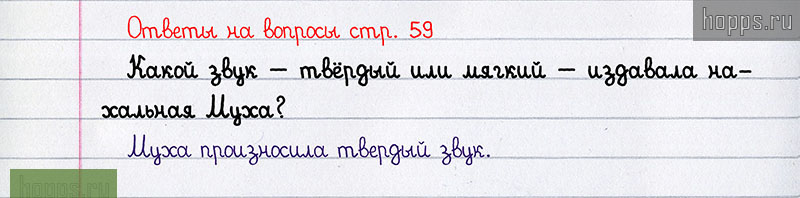 hopps.ru
Ответы на вопросы стр. 59
Какой звук – твёрдый или мягкий – издавала на-
хальная Муха?
Муха произносила твердый звук.
hopps.ru